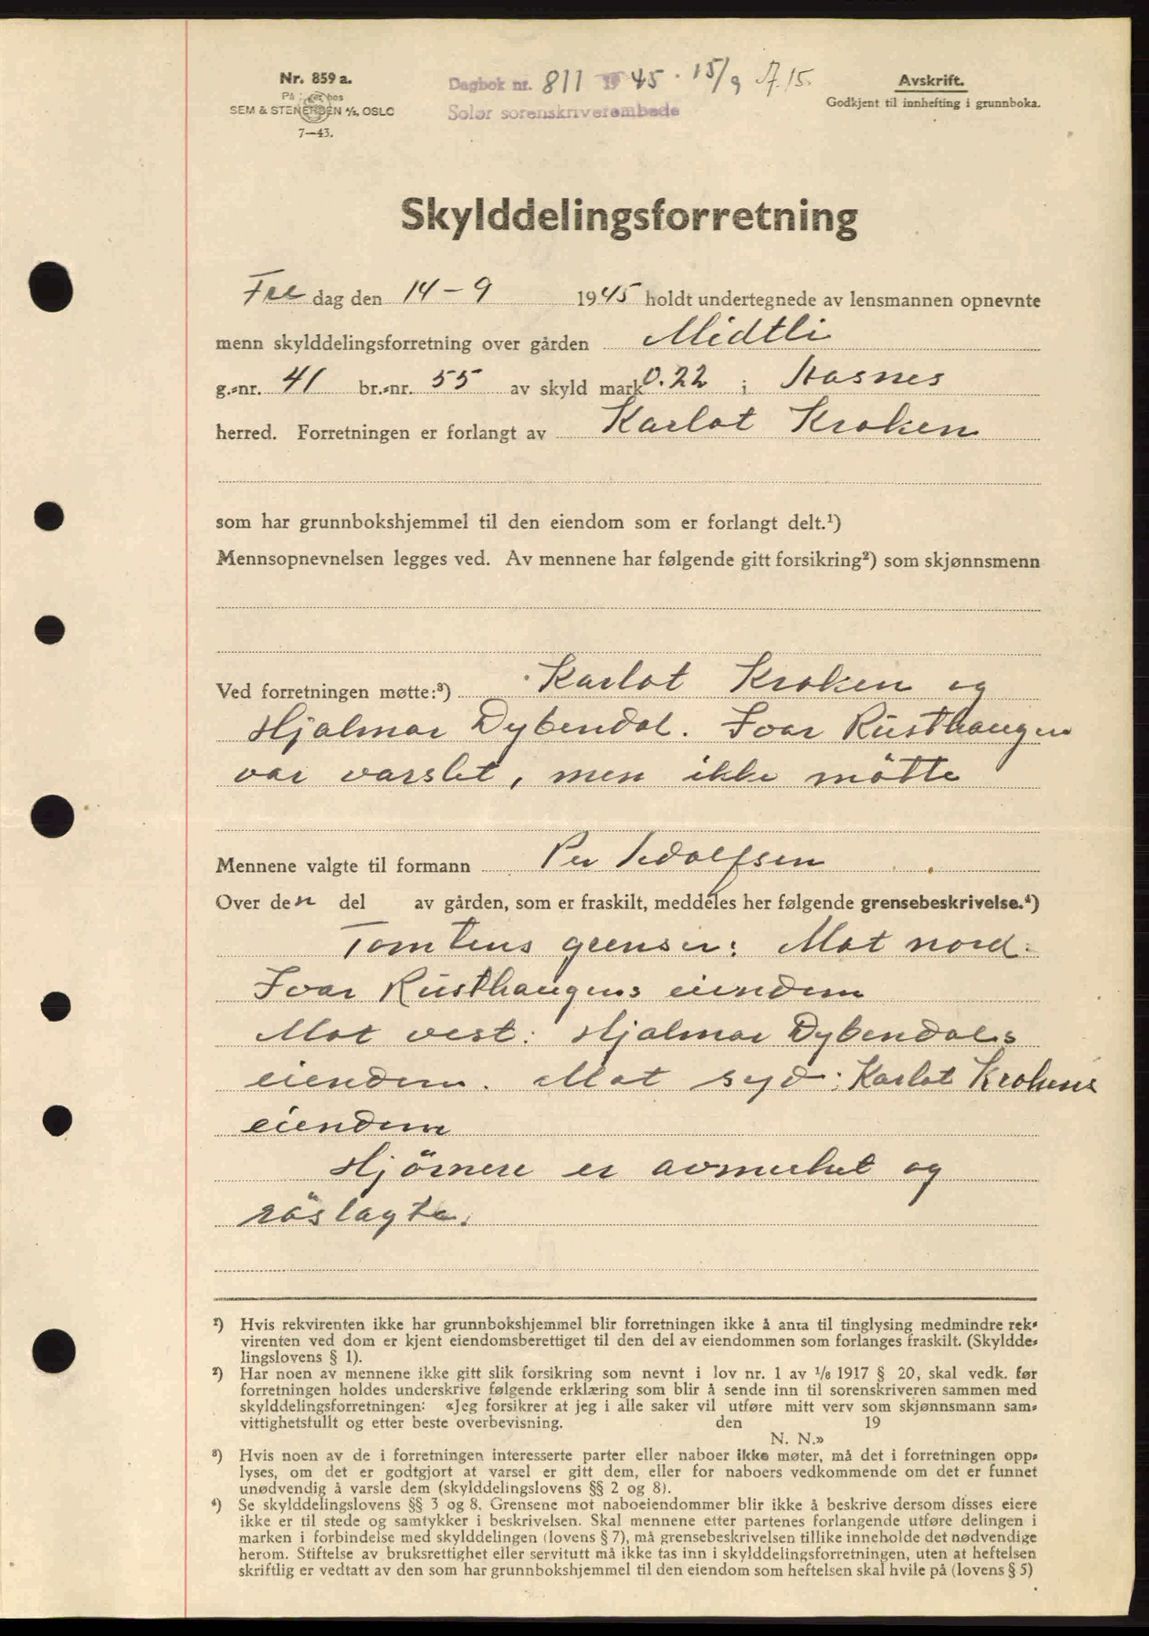 Nr. 859 a.
På lager hos
SEM & STENERSEN A/S, OSLO
7—43.
Dagbok nr. 811 1945 . 15/9 A.15.
Solør sorenskriverembede
Avskrift.
Godkjent til innhefting i grunnboka.
Skylddelingsforretning
Fre dag den 14 – 9 1945 holdt undertegnede av lensmannen opnevnte
menn skylddelingsforretning over gården Midtli
g.-nr. 41 br.-nr. 55 av skyld mark 0.22 i Hasnes
herred. Forretningen er forlangt av Karlot Kroken
som har grunnbokshjemmel til den eiendom som er forlangt delt.¹)
Mennsopnevnelsen legges ved. Av mennene har følgende gitt forsikring²) som skjønnsmenn
Ved forretningen møtte:³) Karlot Kroken og
Hjalmar Dybendal. Ivar Rusthaugen
var varslet, men ikke mötte
Mennene valgte til formann Per Adolfsen
Over den del av gården, som er fraskilt, meddeles her følgende grensebeskrivelse.⁴)
Tomtens grenser: Mot nord:
Ivar Rusthaugens eiendom
Mot vest: Hjalmar Dybendals
eiendom. Mot syd: Karlot Krokens
eiendom
Hjörnene er avmerket og
röslagte.
¹) Hvis rekvirenten ikke har grunnbokshjemmel blir forretningen ikke å anta til tinglysing medmindre rek-
virenten ved dom er kjent eiendomsberettiget til den del av eiendommen som forlanges fraskilt. (Skyldde-
lingslovens § 1).
²) Har noen av mennene ikke gitt slik forsikring som nevnt i lov nr. 1 av 1/6 1917 § 20, skal vedk. før
forretningen holdes underskrive følgende erklæring som blir å sende inn til sorenskriveren sammen med
skylddelingsforretningen: «Jeg forsikrer at jeg i alle saker vil utføre mitt verv som skjønnsmann sam-
vittighetsfullt og etter beste overbevisning. den 19
N. N.»
³) Hvis noen av de i forretningen interesserte parter eller naboer ikke møter, må det i forretningen opp-
lyses, om det er godtgjort at varsel er gitt dem, eller for naboers vedkommende om det er funnet
unødvendig å varsle dem (skylddelingslovens §§ 2 og 8).
⁴) Se skylddelingslovens §§ 3 og 8. Grensene mot naboeiendommer blir ikke å beskrive dersom disses eiere
ikke er til stede og samtykker i beskrivelsen. Skal mennene etter partenes forlangende utføre delingen i
marken i forbindelse med skylddelingen (lovens § 7), må grensebeskrivelsen tillike inneholde det nødvendige
herom. Stiftelse av bruksrettighet eller servitutt må ikke tas inn i skylddelingsforretningen, uten at heftelsen
skriftlig er vedtatt av den som har grunnbokshjemmel til den eiendom som heftelsen skal hvile på (lovens § 5)